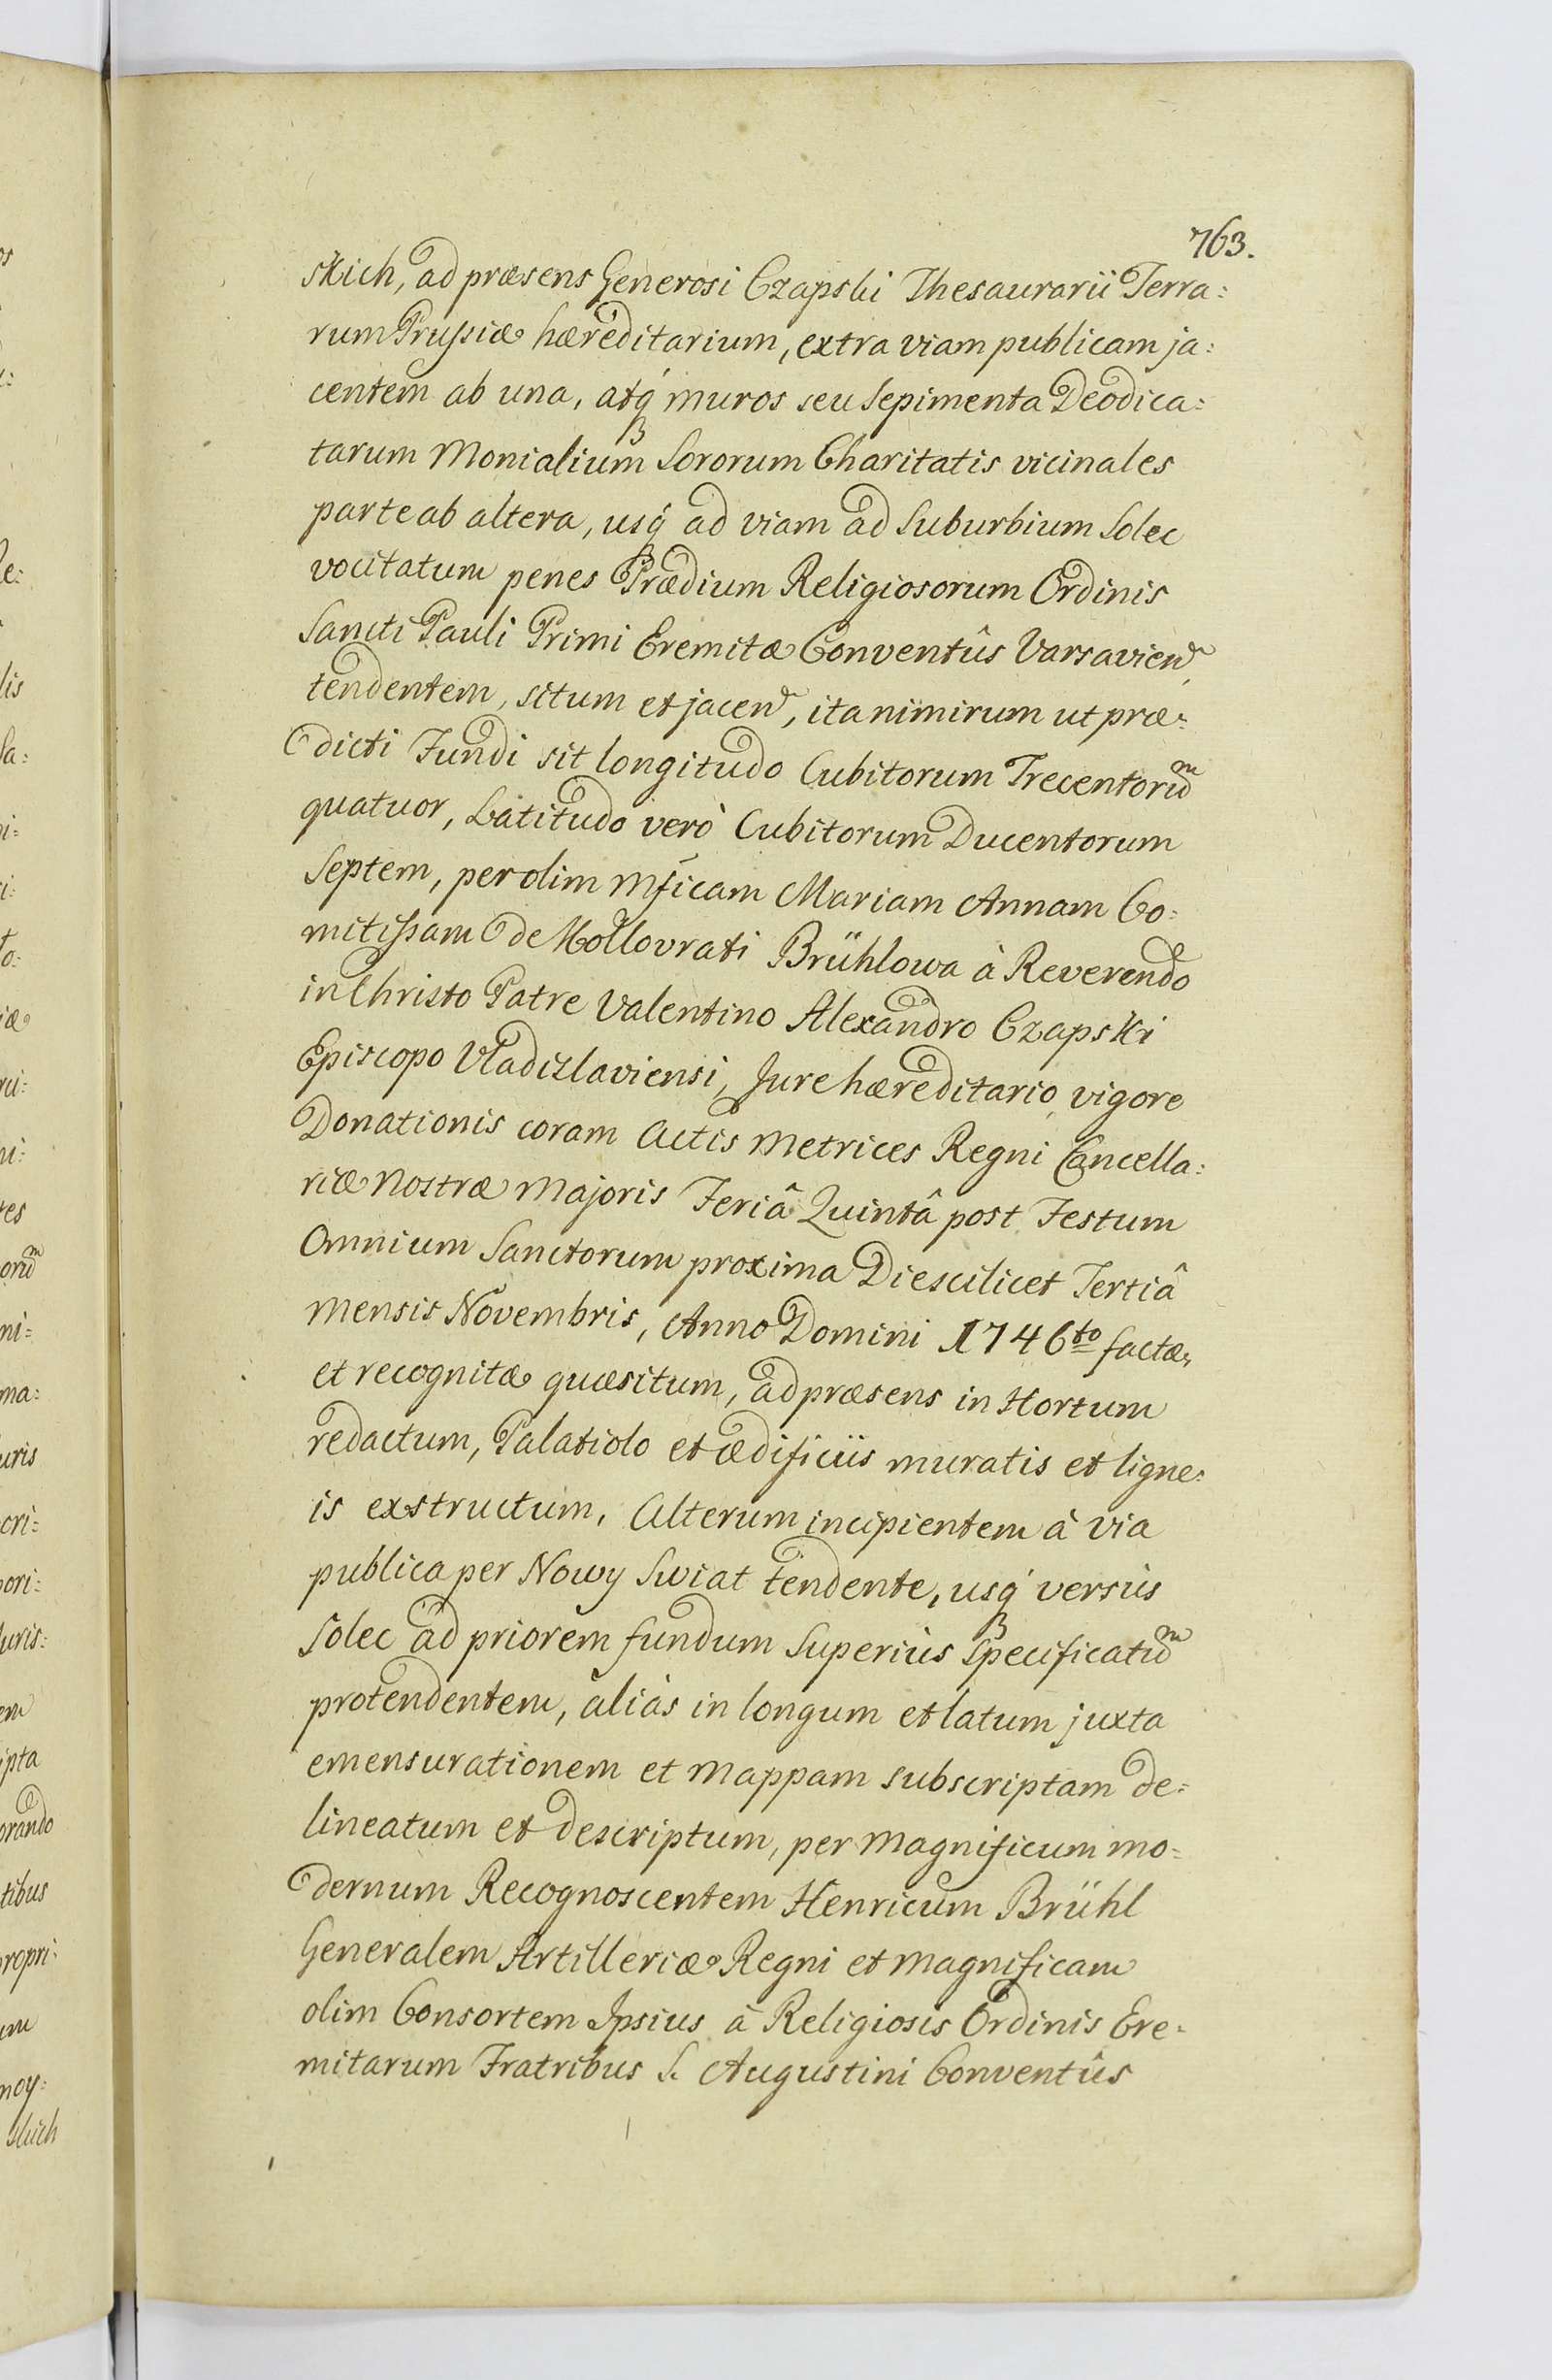 763.
skich, ad præsens Generosi Czapski Thesaurarii Terra:
rum Prussiæ hæreditarium, extra viam publicam ja:
centem ab una, atq́ muros seu Sepimenta Deodica:
tarum Monialium Sororum Charitatis vicinales
parte ab altera, usq́ ad viam ad Suburbium Solec
vocitatum penes Prædium Religiosorum Ordinis
Sancti Pauli Primi Eremitæ Conventûs Varsavien̄,
tendentem, situm et jacen̄, ita nimirum ut præ:
dicti Fundi sit longitudo Cubitorum Trecentoruᵐ
quatuor, Latitudo verò Cubitorum Ducentorum
Septem, per olim Mf̄icam Mariam Annam Co:
mitissam de Kollovrati Brühlowa à Reverendo
in Christo Patre Valentino Alexandro Czapski
Episcopo Vladislaviensi, Jure hæreditario, vigore
Donationis coram Actis Metrices Regni Cancella:
riæ Nostræ Majoris Feriâ Quintâ post Festum
Omnium Sanctorum proxima Die scilicet Tertiâ
Mensis Novembris, Anno Domini 1746to factæ,
et recognitæ quæsitum, ad præsens in Hortum
redactum, Palatiolo et ædificiis muratis et ligne:
is exstructum, Alterum incipientem à via
publica per Nowy Swiat tendente, usq́ versùs
Solec ad priorem fundum Superiùs Specificatuᵐ
protendentem, aliàs in longum et latum juxta
emensurationem et Mappam subscriptam de:
lineatum et descriptum, per Magnificum mo:
dernum Recognoscentem Henricum Brühl
Generalem Artilleriæ Regni et Magnificam
olim Consortem Ipsius à Religiosis Ordinis Ere:
mitarum Fratribus S. Augustini Conventûs